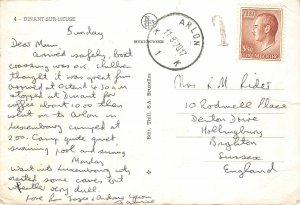 4 - DINANT-SUR-MEUSE
Sunday
Dear Mum
Arrived safely boat
crossing was o.k. children
thought it was great fun
arrived at Ostend 4.30am
stopped at Dinant for
coffee about 10.00 then
went on to Arlon in
Luxembourg camped at
2.00. Camp quite quiet
swimming pool and
Monday
went into Luxembourg
visited some caves but
weather very dull.
Love
ARLON
T
Mrs R M Rider
10 Rodmell Place
Denton Drive
Hollingbury
Brighton
Sussex
England